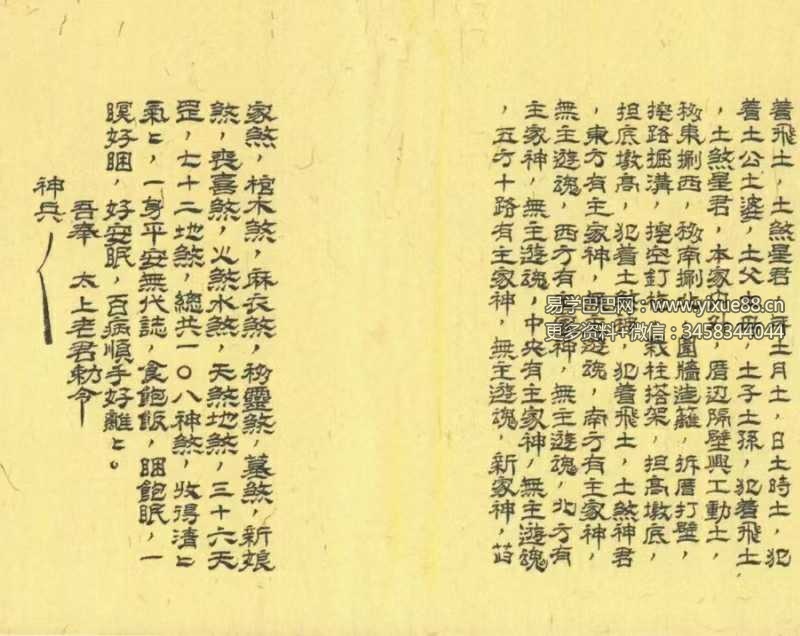 着飛土，土煞星君，年土月土，日土時土，犯
着土公土婆，土父土母，土子土孫，犯着飛土
，土煞星君，本家內外，厝辺隔壁興工動土，
移東搬西，移南搬北，圍牆造籬，拆厝打壁，
挖路掘溝，挖空釘 栽柱搭架，担高墩底，
担底墩高，犯着土煞神，犯着飛土，土煞神君
，東方有主家神，無主遊魂，南方有主家神，
無主遊魂，西方有主家神，無主遊魂，北方有
主家神，無主遊魂，中央有主家神，無主遊魂
，五方十路有主家神，無主遊魂，新家神，古
家煞，棺木煞，麻衣煞，移靈煞，墓煞，新娘
煞，喪喜煞，火煞水煞，天煞地煞，三十六天
罡，七十二地煞，總共一〇八神煞，收得清ㄴ
氣ㄴ，一身平安無代誌，食飽飯，睏飽眠，一
暝好睏，好安眠，百病順手好離ㄴ。
吾奉　太上老君勅令
神兵
易学巴巴网：www.yixue88.cn
更多资料+微信：3458344044